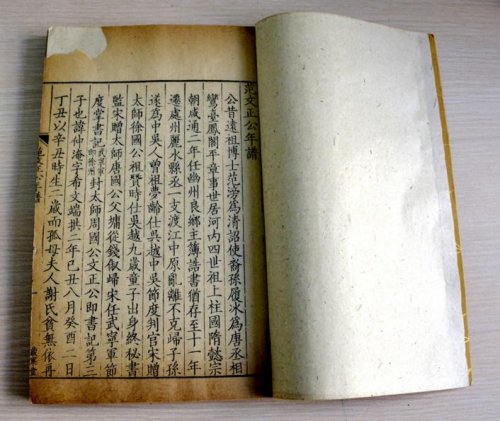 范文正公年譜
公昔遠祖博士范滂為清詔使裔孫履冰為唐丞相
鸞臺鳳閣平章事世居河內四世祖上柱國隋懿宗
朝咸通二年任幽州良鄉主簿誥書猶存至十一年
遷處州麗水縣丞一支渡江中原亂離不克歸子孫
遂為中吳人曾祖夢齡仕吳越中吳節度判官宋贈
太師徐國公祖贊時仕吳越九歲童子出身終秘書
監宋贈太師唐國公父墉從錢俶歸宋任武寧軍節
度掌書記武寧軍即徐州封太師周國公文正公即書記第三
子也諱仲淹字希文端拱二年己丑八月癸酉二日
丁丑以辛丑時生二歲而孤母夫人謝氏貧無依再
歲寒堂